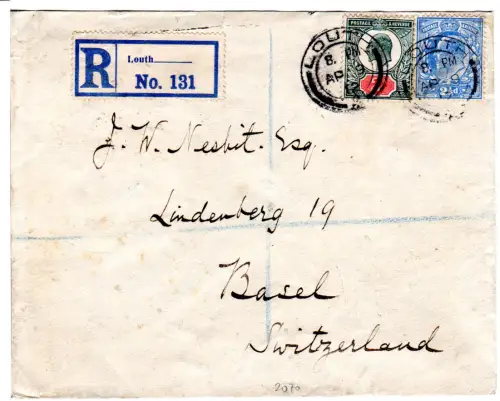 R
Louth
No. 131
POSTAGE & REVENUE
LOUTH
8. PM
AP
LOUTH
8. PM
AP 9
2½d
J. W. Nesbit. Esq.
Lindenberg 19
Basel
Switzerland
2070